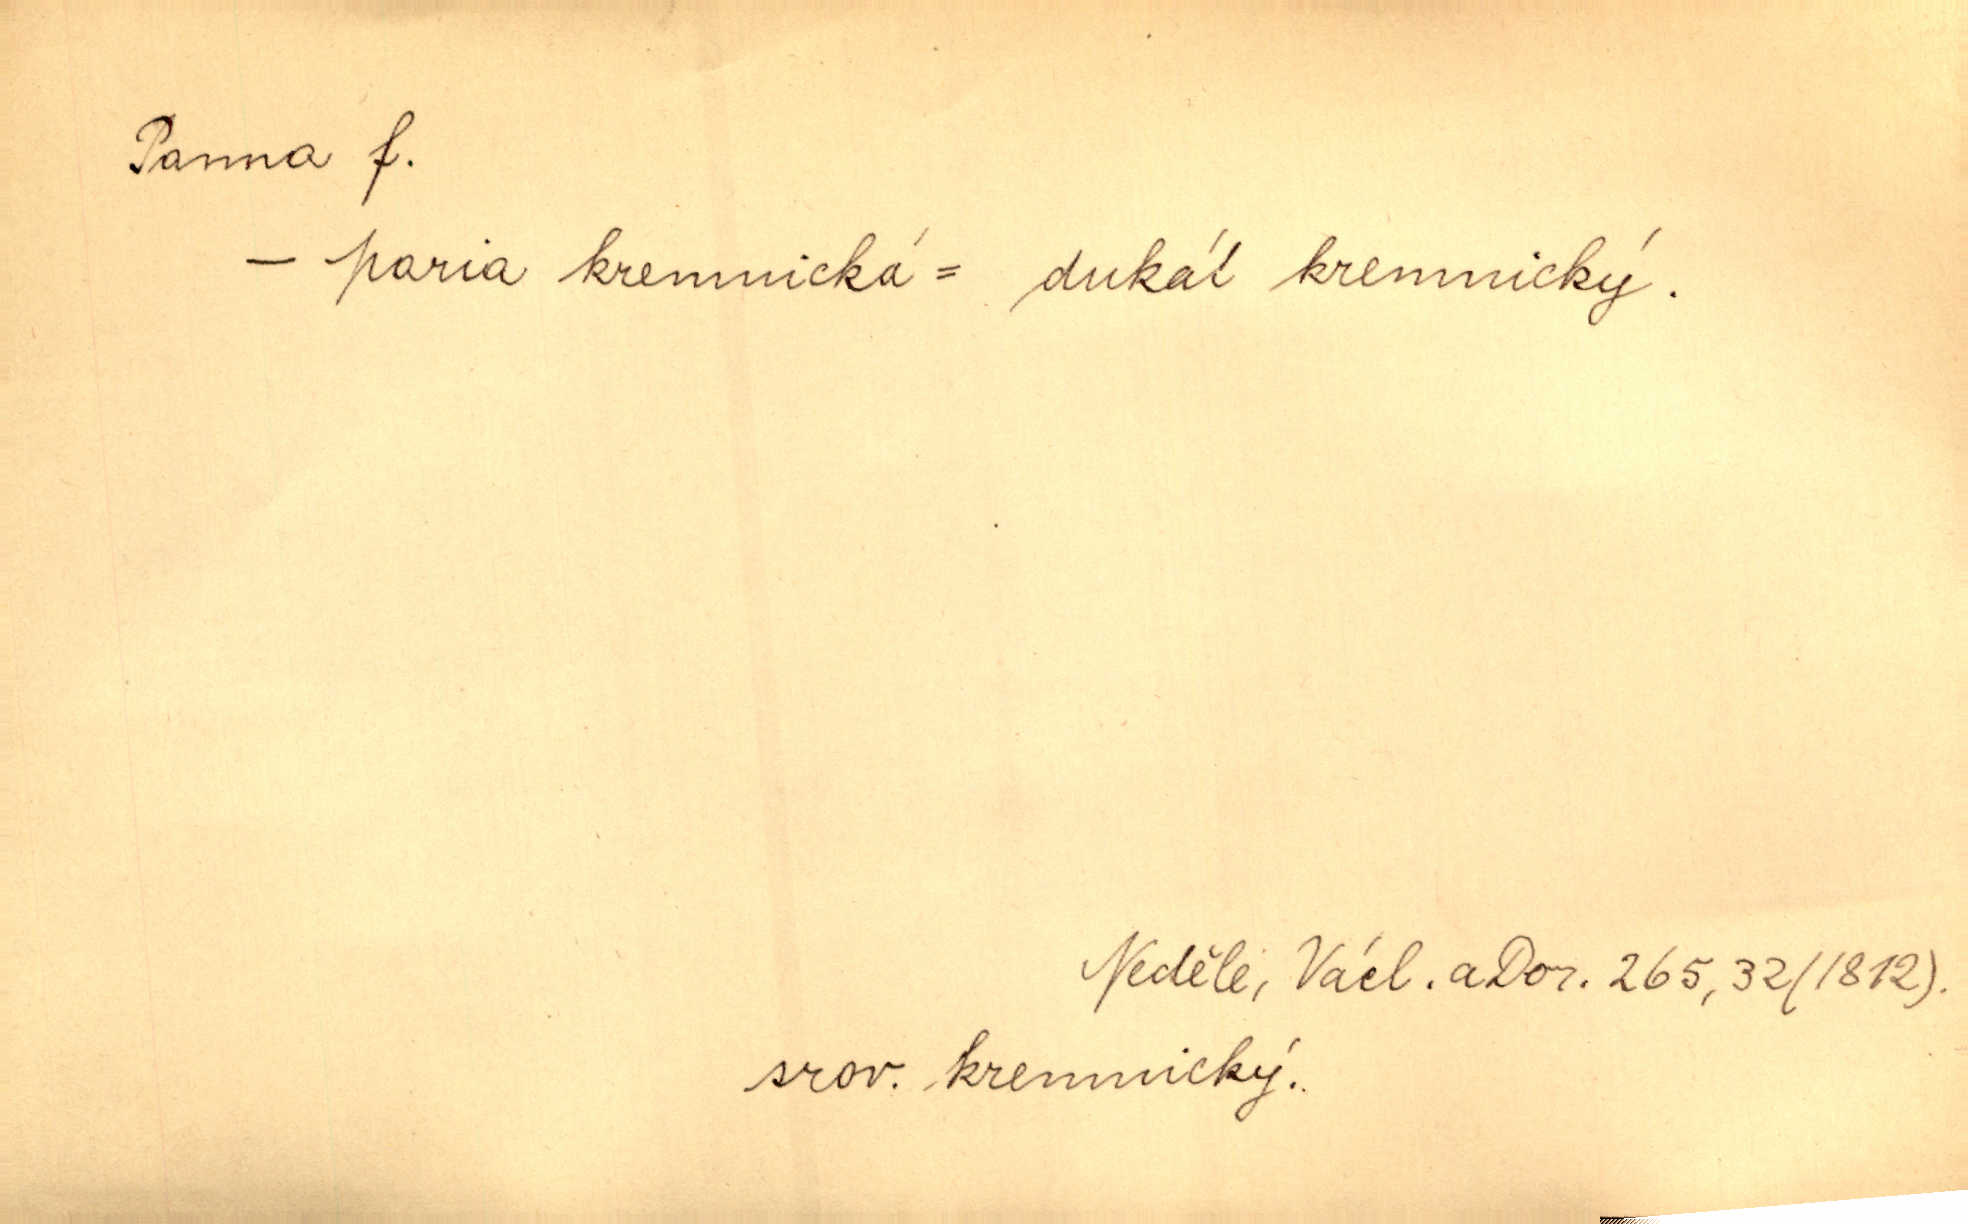 Panna f.
— paria kremnická = dukát kremnický.
Nedělé, Václ. a Dor. 265, 32 (1812).
srov. kremnický.